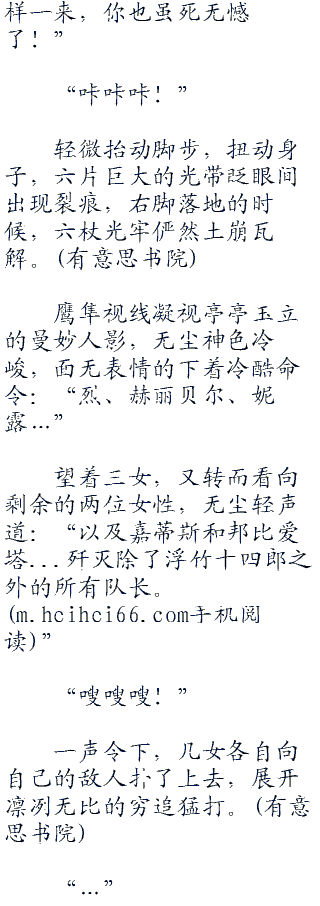 样一来，你也虽死无憾
了！”
“咔咔咔！”
轻微抬动脚步，扭动身
子，六片巨大的光带眨眼间
出现裂痕，右脚落地的时
候，六杖光牢俨然土崩瓦
解。(有意思书院)
鹰隼视线凝视亭亭玉立
的曼妙人影，无尘神色冷
峻，面无表情的下着冷酷命
令：“烈、赫丽贝尔、妮
露…”
望着三女，又转而看向
剩余的两位女性，无尘轻声
道：“以及嘉蒂斯和邦比爱
塔...歼灭除了浮竹十四郎之
外的所有队长。
(m.hcihci66.com手机阅
读)”
“嗖嗖嗖！”
一声令下，几女各自向
自己的敌人扑了上去，展开
凛冽无比的穷追猛打。(有意
思书院)
“…”